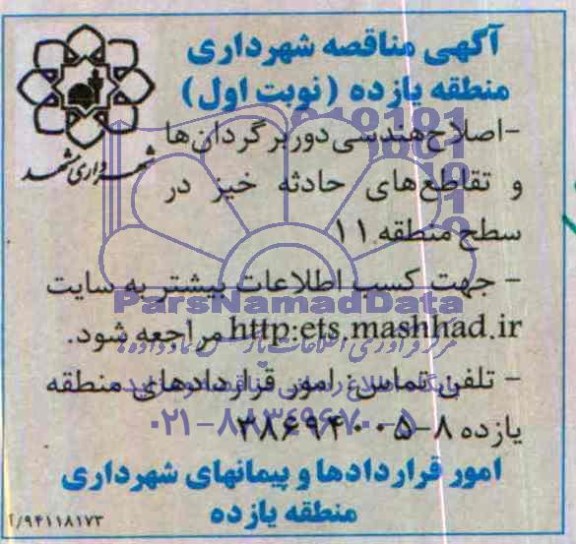 آگهی مناقصه شهرداری
منطقه یازده (نوبت اول)
شهرداری مشهد
-اصلاح هندسی دوربرگردان ها
و تقاطع های حادثه خیز در
سطح منطقه ۱۱
- جهت کسب اطلاعات بیشتر به سایت
http:ets.mashhad.ir مراجعه شود.
- تلفن تماس: امور قراردادهای منطقه
یازده ۸-۳۸۶۹۴۰۰۵
امور قراردادها و پیمانهای شهرداری
منطقه یازده
۹۴۱۱۸۱۷۳/آ
ParsNamadData
۰۲۱-۸۸۳۴۹۶۷۰-۵